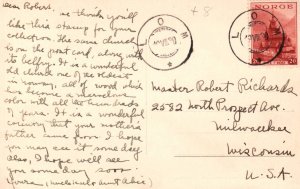 Dear Robert,
We think you'll
like this stamp for your
collection. The same church
is on the post card, along with
its belfry. It is a wonderful
old church one of the oldest
in Norway, all of wood which
has become a marvelous
color with all the hundreds
of years. It is a wonderful
country that your mother's
father came from. I hope
you may see it some day.
Also, I hope we'll see
you some day soon.
+8
LOM
LOM
NORGE
20
Master Robert Richards
2582 North Prospect Ave.
Milwaukee
Wisconsin
U.S.A.